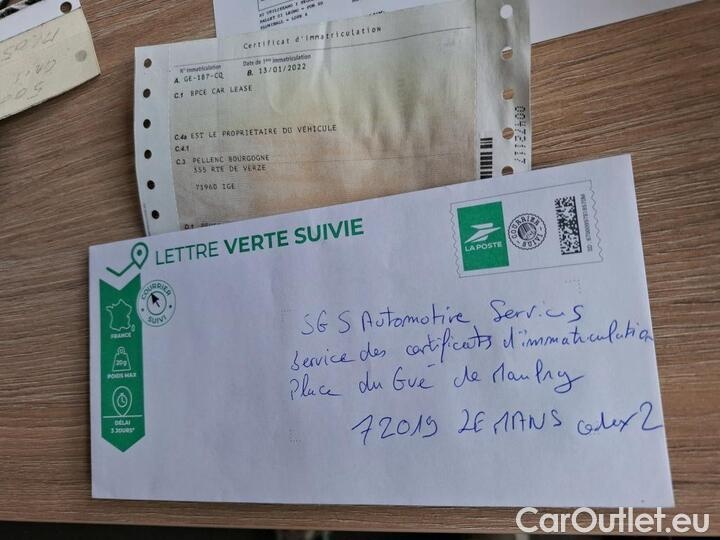 Certificat d'immatriculation
N° Immatriculation
Date de 1ère immatriculation
A. GE-187-CQ
B. 13/01/2022
C.1 BPCE CAR LEASE
C.4a EST LE PROPRIETAIRE DU VÉHICULE
C.4.1
C.3 PELLENC BOURGOGNE
355 RTE DE VERZE
71960 IGE
LETTRE VERTE SUIVIE
COURRIER
SUIVI
FRANCE
20g
POIDS MAX
DÉLAI
3 JOURS*
LA POSTE
COURRIER
SUIVI
SGS Automotive Services
Service des certificats d'immatriculation
Place du Gué de Maulny
72019 LE MANS cedex 2
CarOutlet.eu